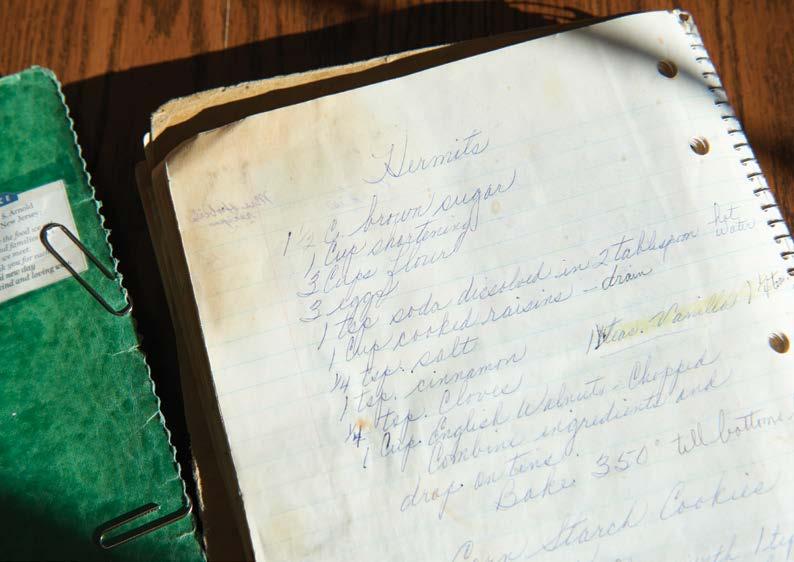 S. Arnold
New Jersey
the food we
nd families
we meet.
nk you for each
new day
kind and loving
Hermits
1 1/2 C. brown sugar
1 Cup shortening
3 Cups flour
3 eggs
1 tsp soda dissolved in 2 tablespoon hot water
1 Cup cooked raisins - drain
1/4 tsp. salt
1 tsp. cinnamon
teas. Vanilla
1/4 tsp. Cloves
1 Cup. English Walnuts - Chopped
Combine ingredients and
drop on tins.
Bake 350° till bottoms
Corn Starch Cookies
with 1 tsp